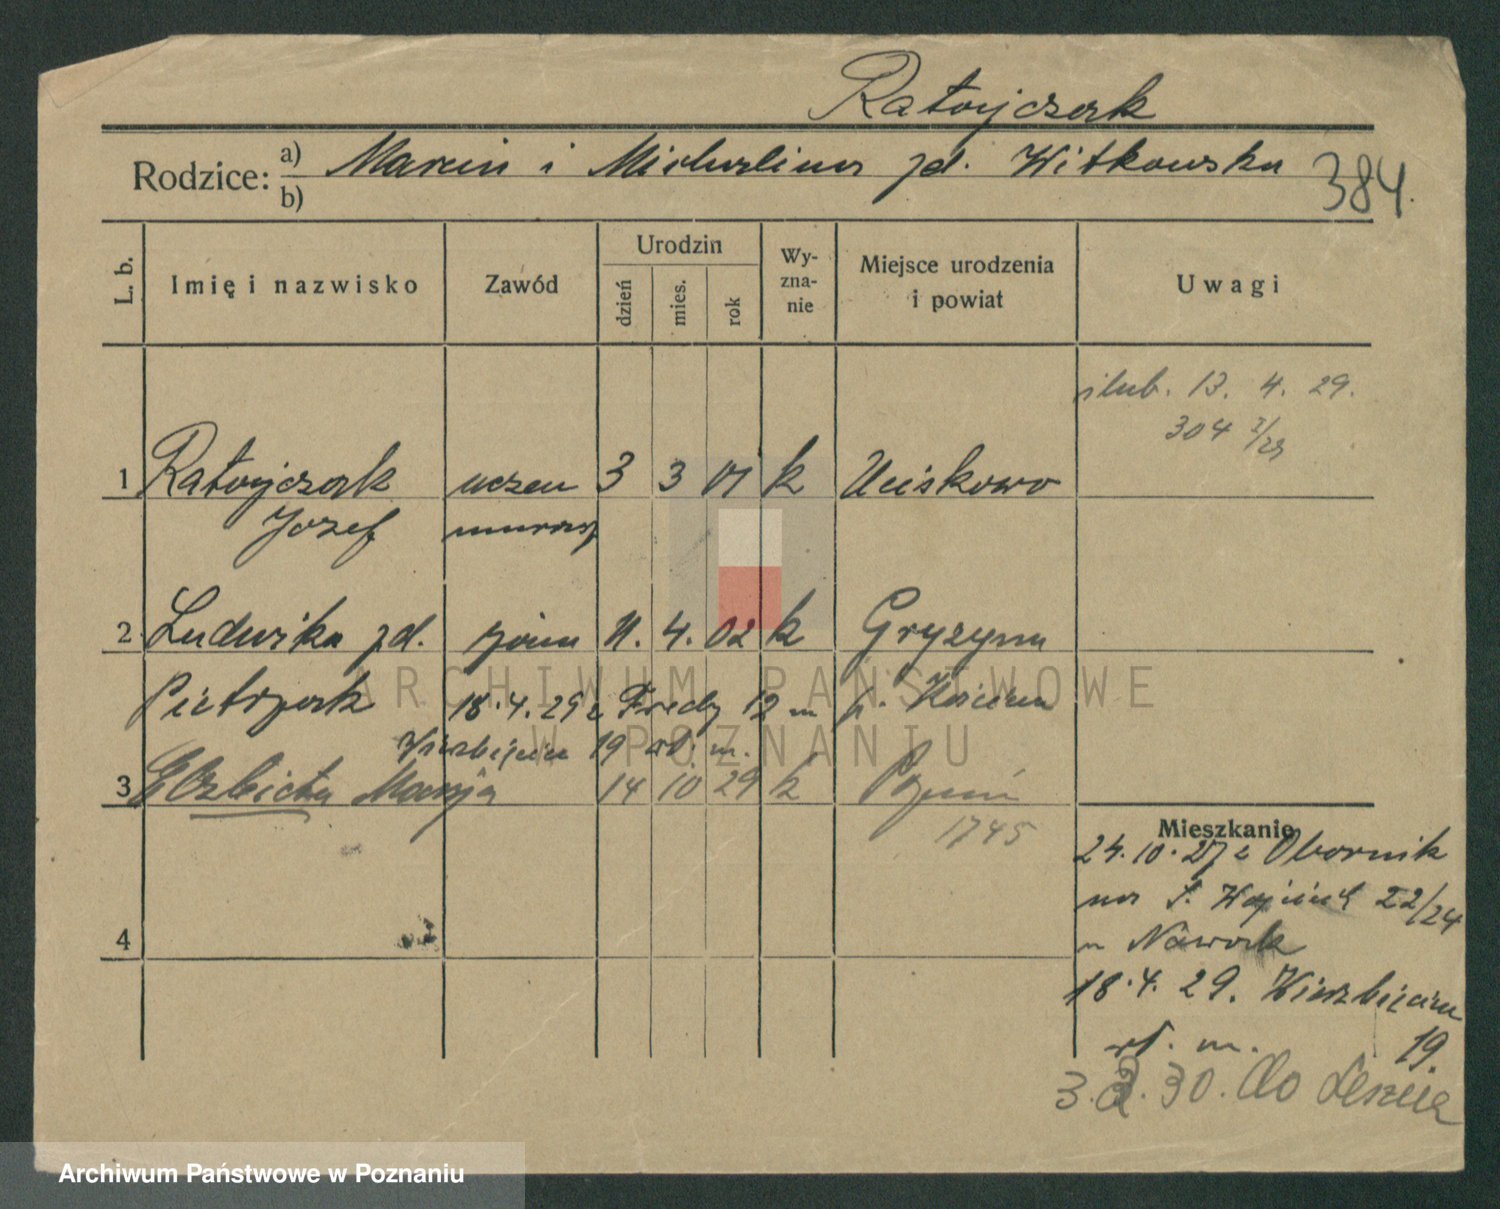 Ratajczak
Rodzice: a) Marcin i Michalina zd. Witkowska
b)
384.
L. b.
Imię i nazwisko
Zawód
Urodzin
dzień
mies.
rok
Wy-
zna-
nie
Miejsce urodzenia
i powiat
Uwagi
ślub. 13. 4. 29.
304
1 Ratajczak uczeń 3 3 01 k Uciskowo
Józef murarz
2 Ludwika zd. żona 11. 4. 02 k Gryzyna
Pietrzak 18.4.29 z Fredry 12 m p. Kościan
Wierzbięcice 19 wł. m.
3 Elżbieta Marja 14 10 29 k Poznań
1745
4
Mieszkanie
24.10.27 z Obornik
na Ś. Wojciech 22/24
m Nawrok
18.4.29. Wierzbięcice
wł. m. 19.
3.2.30. do Leszna
ARCHIWUM PAŃSTWOWE
W POZNANIU
Archiwum Państwowe w Poznaniu